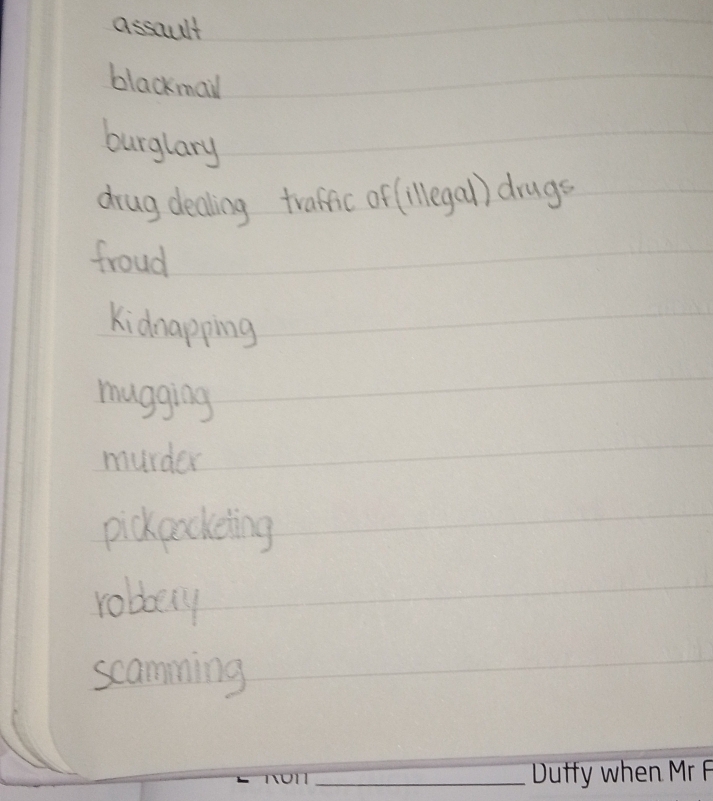 assault
blackmail
burglary
drug dealing traffic of (illegal) drugs
froud
Kidnapping
mugging
murder
pickpocketing
robbery
scamming
Duffy when Mr